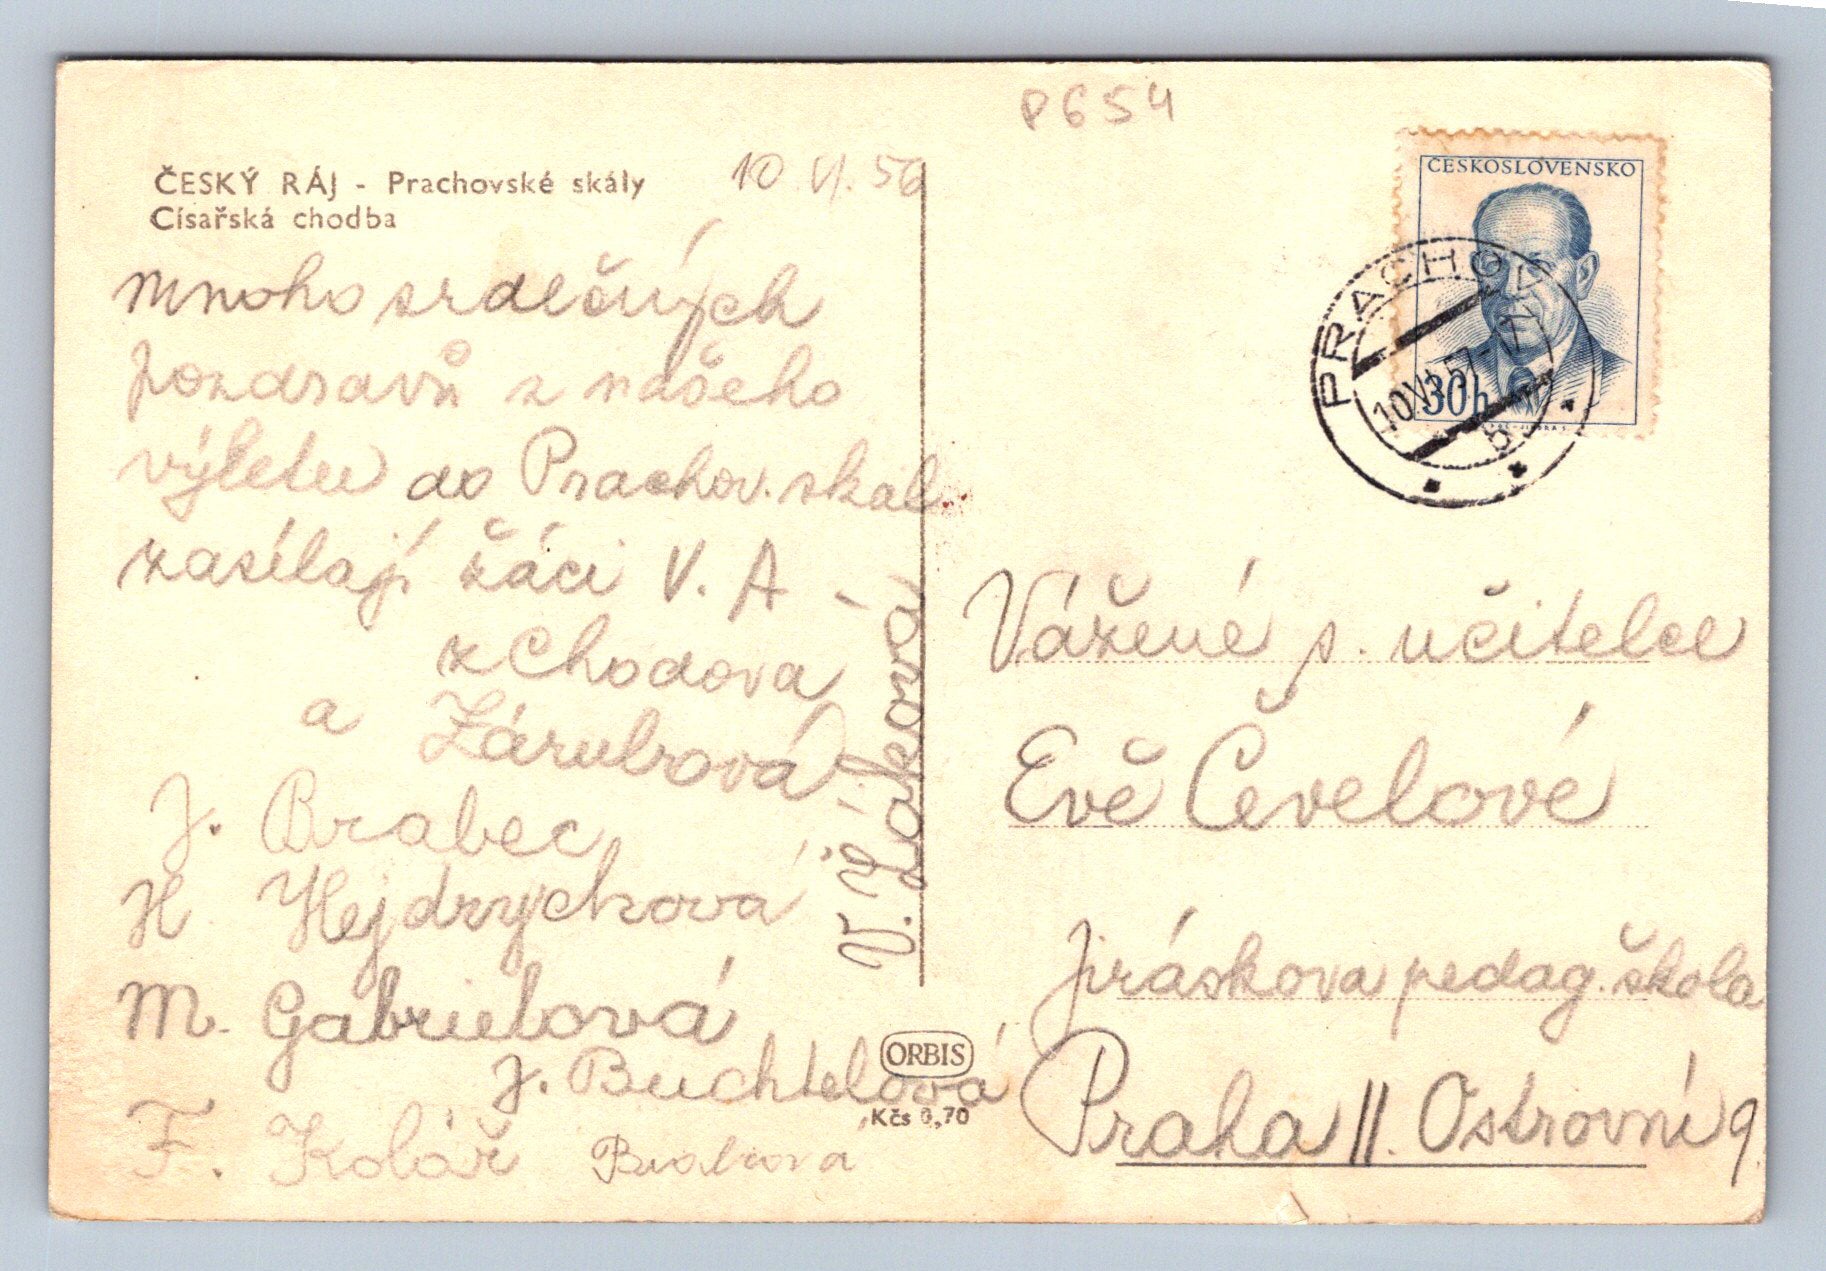 P654
ČESKÝ RÁJ - Prachovské skály
Císařská chodba
10 VI. 56
ČESKOSLOVENSKO
30h
PRACHOV
10.VI.57-17
b
Mnoho srdečných
pozdravů z našeho
výletu do Prachov. skal
zasílají žáci V. A -
z Chodova
a Zárubová
J. Brabec
H Hejdrychová
M. Gabrielová
J. Buchtelová
F. Kolář
V. Žáková
Vážené s. učitelce
Evě Čevelové
Jiráskova pedag. škola
Praha II. Ostrovní 9
ORBIS
Kčs 0,70